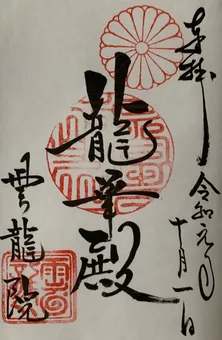 奉拝
令和元年
十月一日
龍華殿
雲龍院